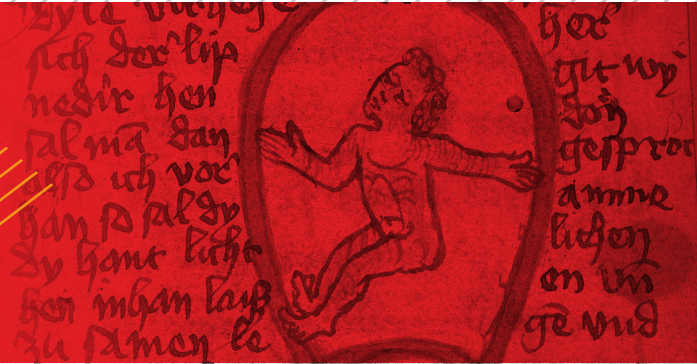 sich der lip
nedir hen
sal mā dan
also ich vor
han so sal dy
dy hant licht
hen inhan lais
zu samen le
her
git wy
don
gesproc
amme
lichen
en vn̄
ge vnd